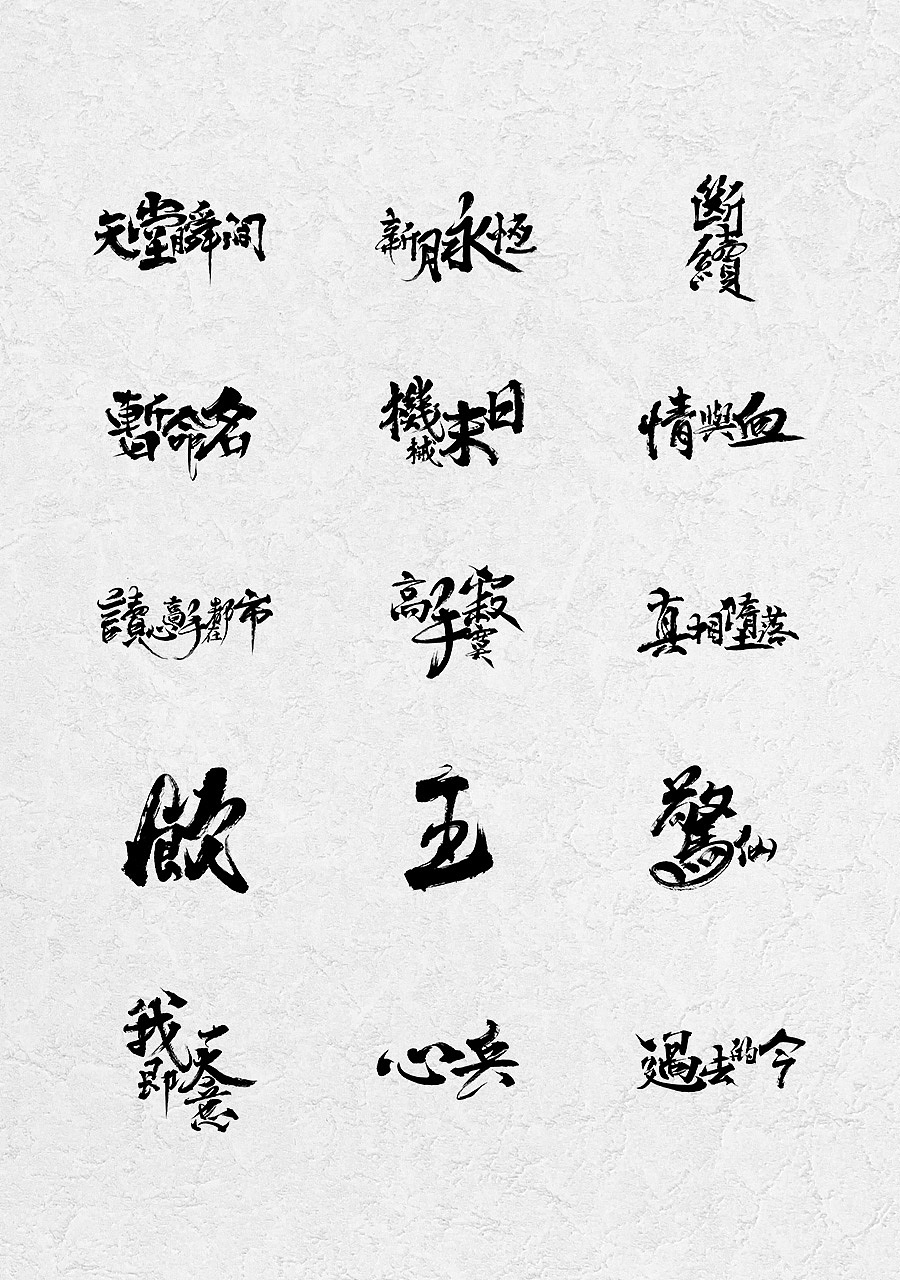 天堂瞬间
新月永恆
斷續
暫命名
機械末日
情與血
讀心高手在都市
高手寂寞
真相墮落
飲
王
驚仙
我即天意
心兵
過去的今